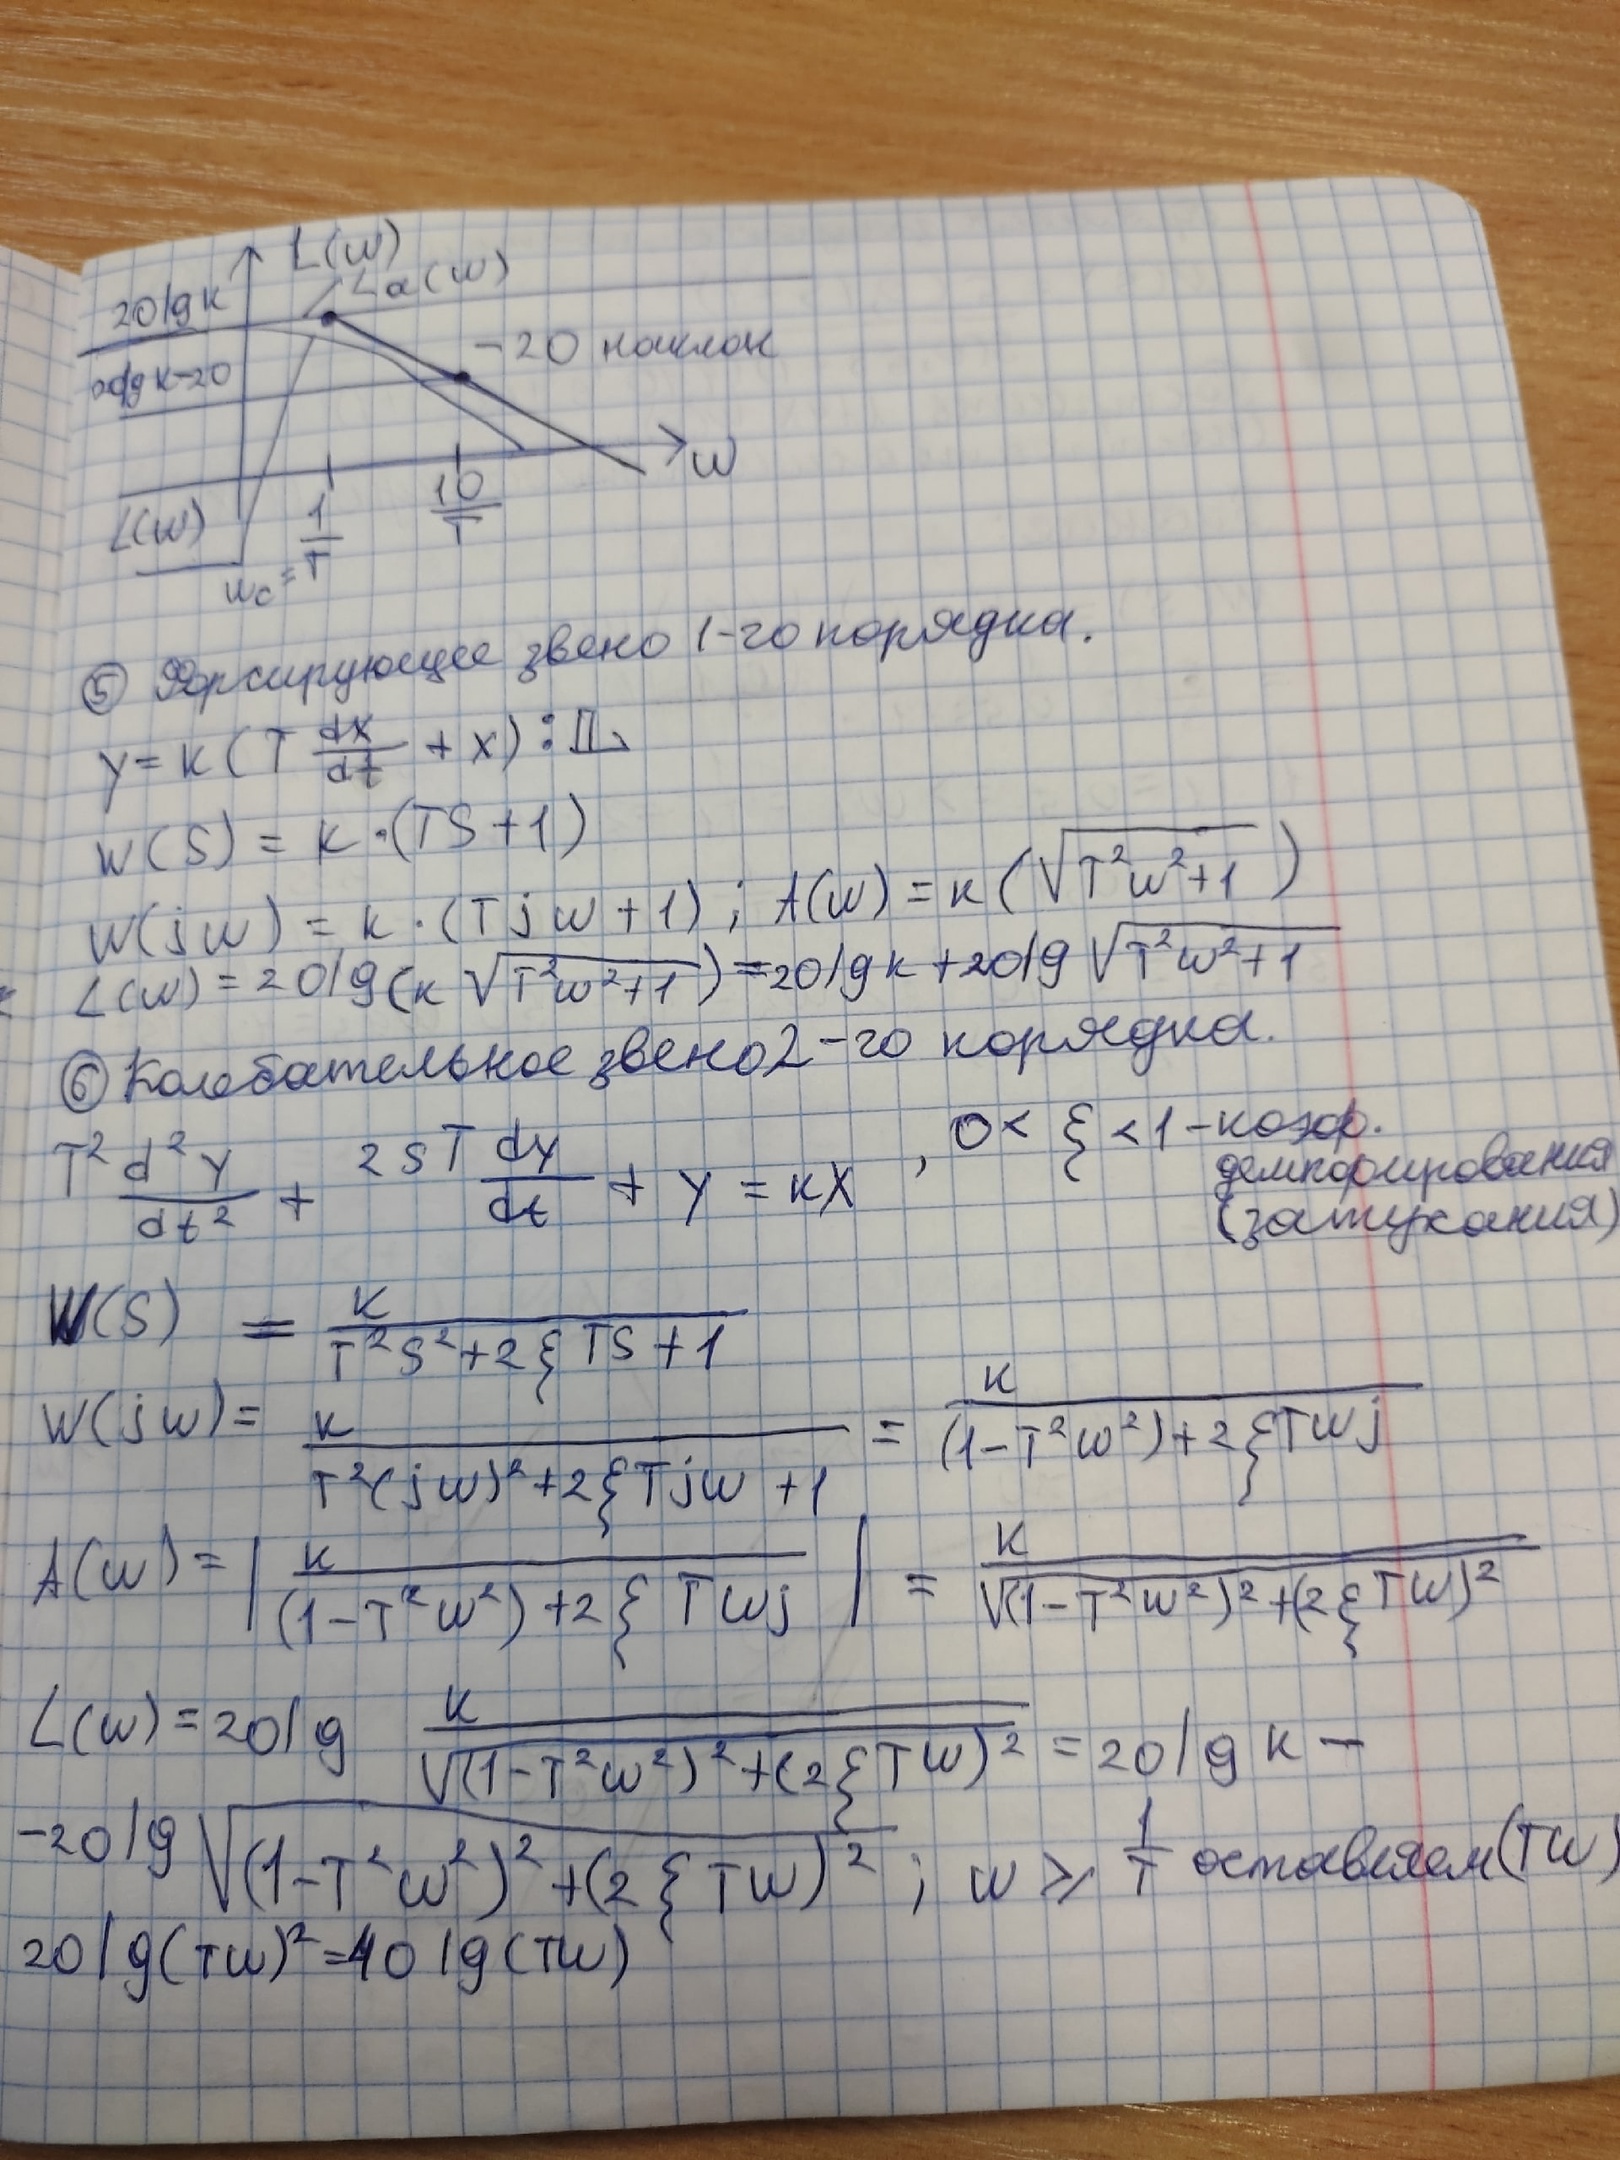 L(w)
La(w)
20lg к
-20 наклон
20lg к-20
w
L(w)
wc = 1/T
10/T
⑤ Форсирующее звено 1-го порядка.
y = к (T dx/dt + x) : L
W(S) = к · (TS + 1)
W(jw) = к · (Tjw + 1) ; A(w) = к (√(T²w²+1))
L(w) = 20lg(к √(T²w²+1)) = 20lg к + 20lg √(T²w²+1)
⑥ Колебательное звено 2-го порядка.
T² d²y/dt² + 2ST dy/dt + y = кx , 0 < ξ < 1 - коэф.
демпфирования
(затухания)
W(S) = к/(T²S² + 2ξTS + 1)
W(jw) = к/(T²(jw)² + 2ξTjw + 1) = к/((1-T²w²) + 2ξTwj)
A(w) = |к/((1-T²w²) + 2ξTwj)| = к/√((1-T²w²)² + (2ξTw)²)
L(w) = 20lg к/√((1-T²w²)² + (2ξTw)²) = 20lg к -
-20lg √((1-T²w²)² + (2ξTw)²) ; w ⩾ 1/T оставляем (Tw)
20lg(Tw)² = 40lg(Tw)